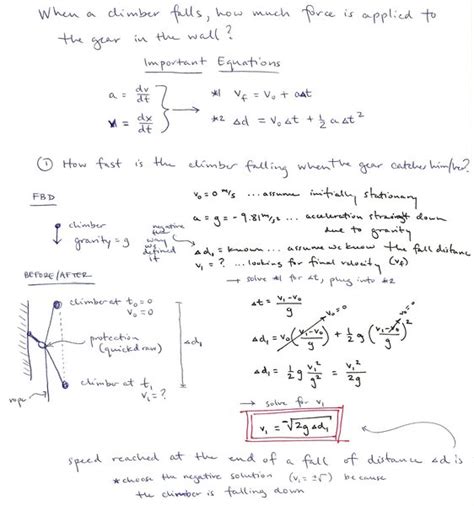 When a climber falls, how much force is applied to
the gear in the wall?
Important Equations
a = dv/dt
v = dx/dt
*1 Vf = V₀ + aΔt
*2 Δd = V₀Δt + ½ aΔt²
① How fast is the climber falling when the gear catches him/her?
FBD
climber
gravity = g
negative
way
we
defined
it
V₀ = 0 m/s ... assume initially stationary
a = g = -9.81 m/s² ... acceleration straight down
due to gravity
Δd₁ = known ... assume we know the fall distance
V₁ = ? ... looking for final velocity (Vf)
→ solve *1 for Δt, plug into *2
BEFORE/AFTER
climber at t₀ = 0
V₀ = 0
protection
(quickdraw)
Δd₁
climber at t₁
V₁ = ?
rope
Δt = (V₁-V₀)/g
V₀=0
Δd₁ = V₀((V₁-V₀)/g) + ½ g((V₁-V₀)/g)²
V₀=0
Δd₁ = ½ g V₁²/g² = V₁²/2g
→ solve for V₁
V₁ = -√2gΔd₁
speed reached at the end of a fall of distance Δd is
*choose the negative solution because
the climber is falling down